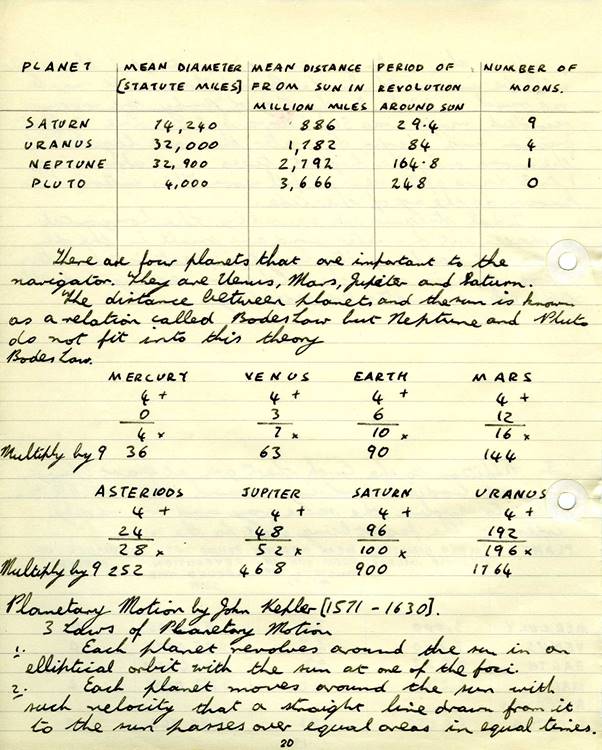 PLANET MEAN DIAMETER MEAN DISTANCE PERIOD OF NUMBER OF
[STATUTE MILES] FROM SUN IN REVOLUTION MOONS.
MILLION MILES AROUND SUN
SATURN 74,240 886 29.4 9
URANUS 32,000 1,782 84 4
NEPTUNE 32,900 2,792 164.8 1
PLUTO 4,000 3,666 248 0
There are four planets that are important to the
navigator. They are Venus, Mars, Jupiter and Saturn.
The distance between planets and the sun is known
as a relation called Bodes Law but Neptune and Pluto
do not fit into this theory
Bodes Law.
MERCURY VENUS EARTH MARS
4 + 4 + 4 + 4 +
0 3 6 12
4 x 7 x 10 x 16 x
Multiply by 9 36 63 90 144
ASTERIODS JUPITER SATURN URANUS
4 + 4 + 4 + 4 +
24 48 96 192
28 x 52 x 100 x 196 x
Multiply by 9 252 468 900 1764
Planetary Motion by John Kepler [1571 - 1630].
3 Laws of Planetary Motion
1. Each planet revolves around the sun in an
elliptical orbit with the sun at one of the foci.
2. Each planet moves around the sun with
such velocity that a straight line drawn from it
to the sun passes over equal areas in equal times.
20